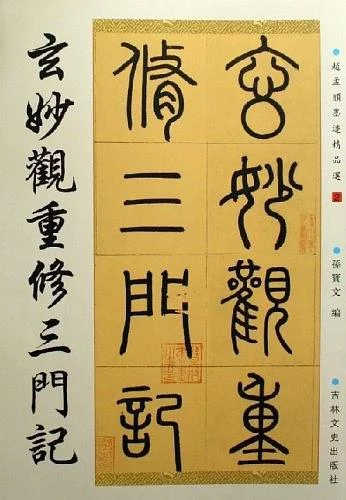 趙孟頫墨迹精品選 2
孫寶文 编
吉林文史出版社
玄妙觀重
脩三門記
玄妙觀重修三門記